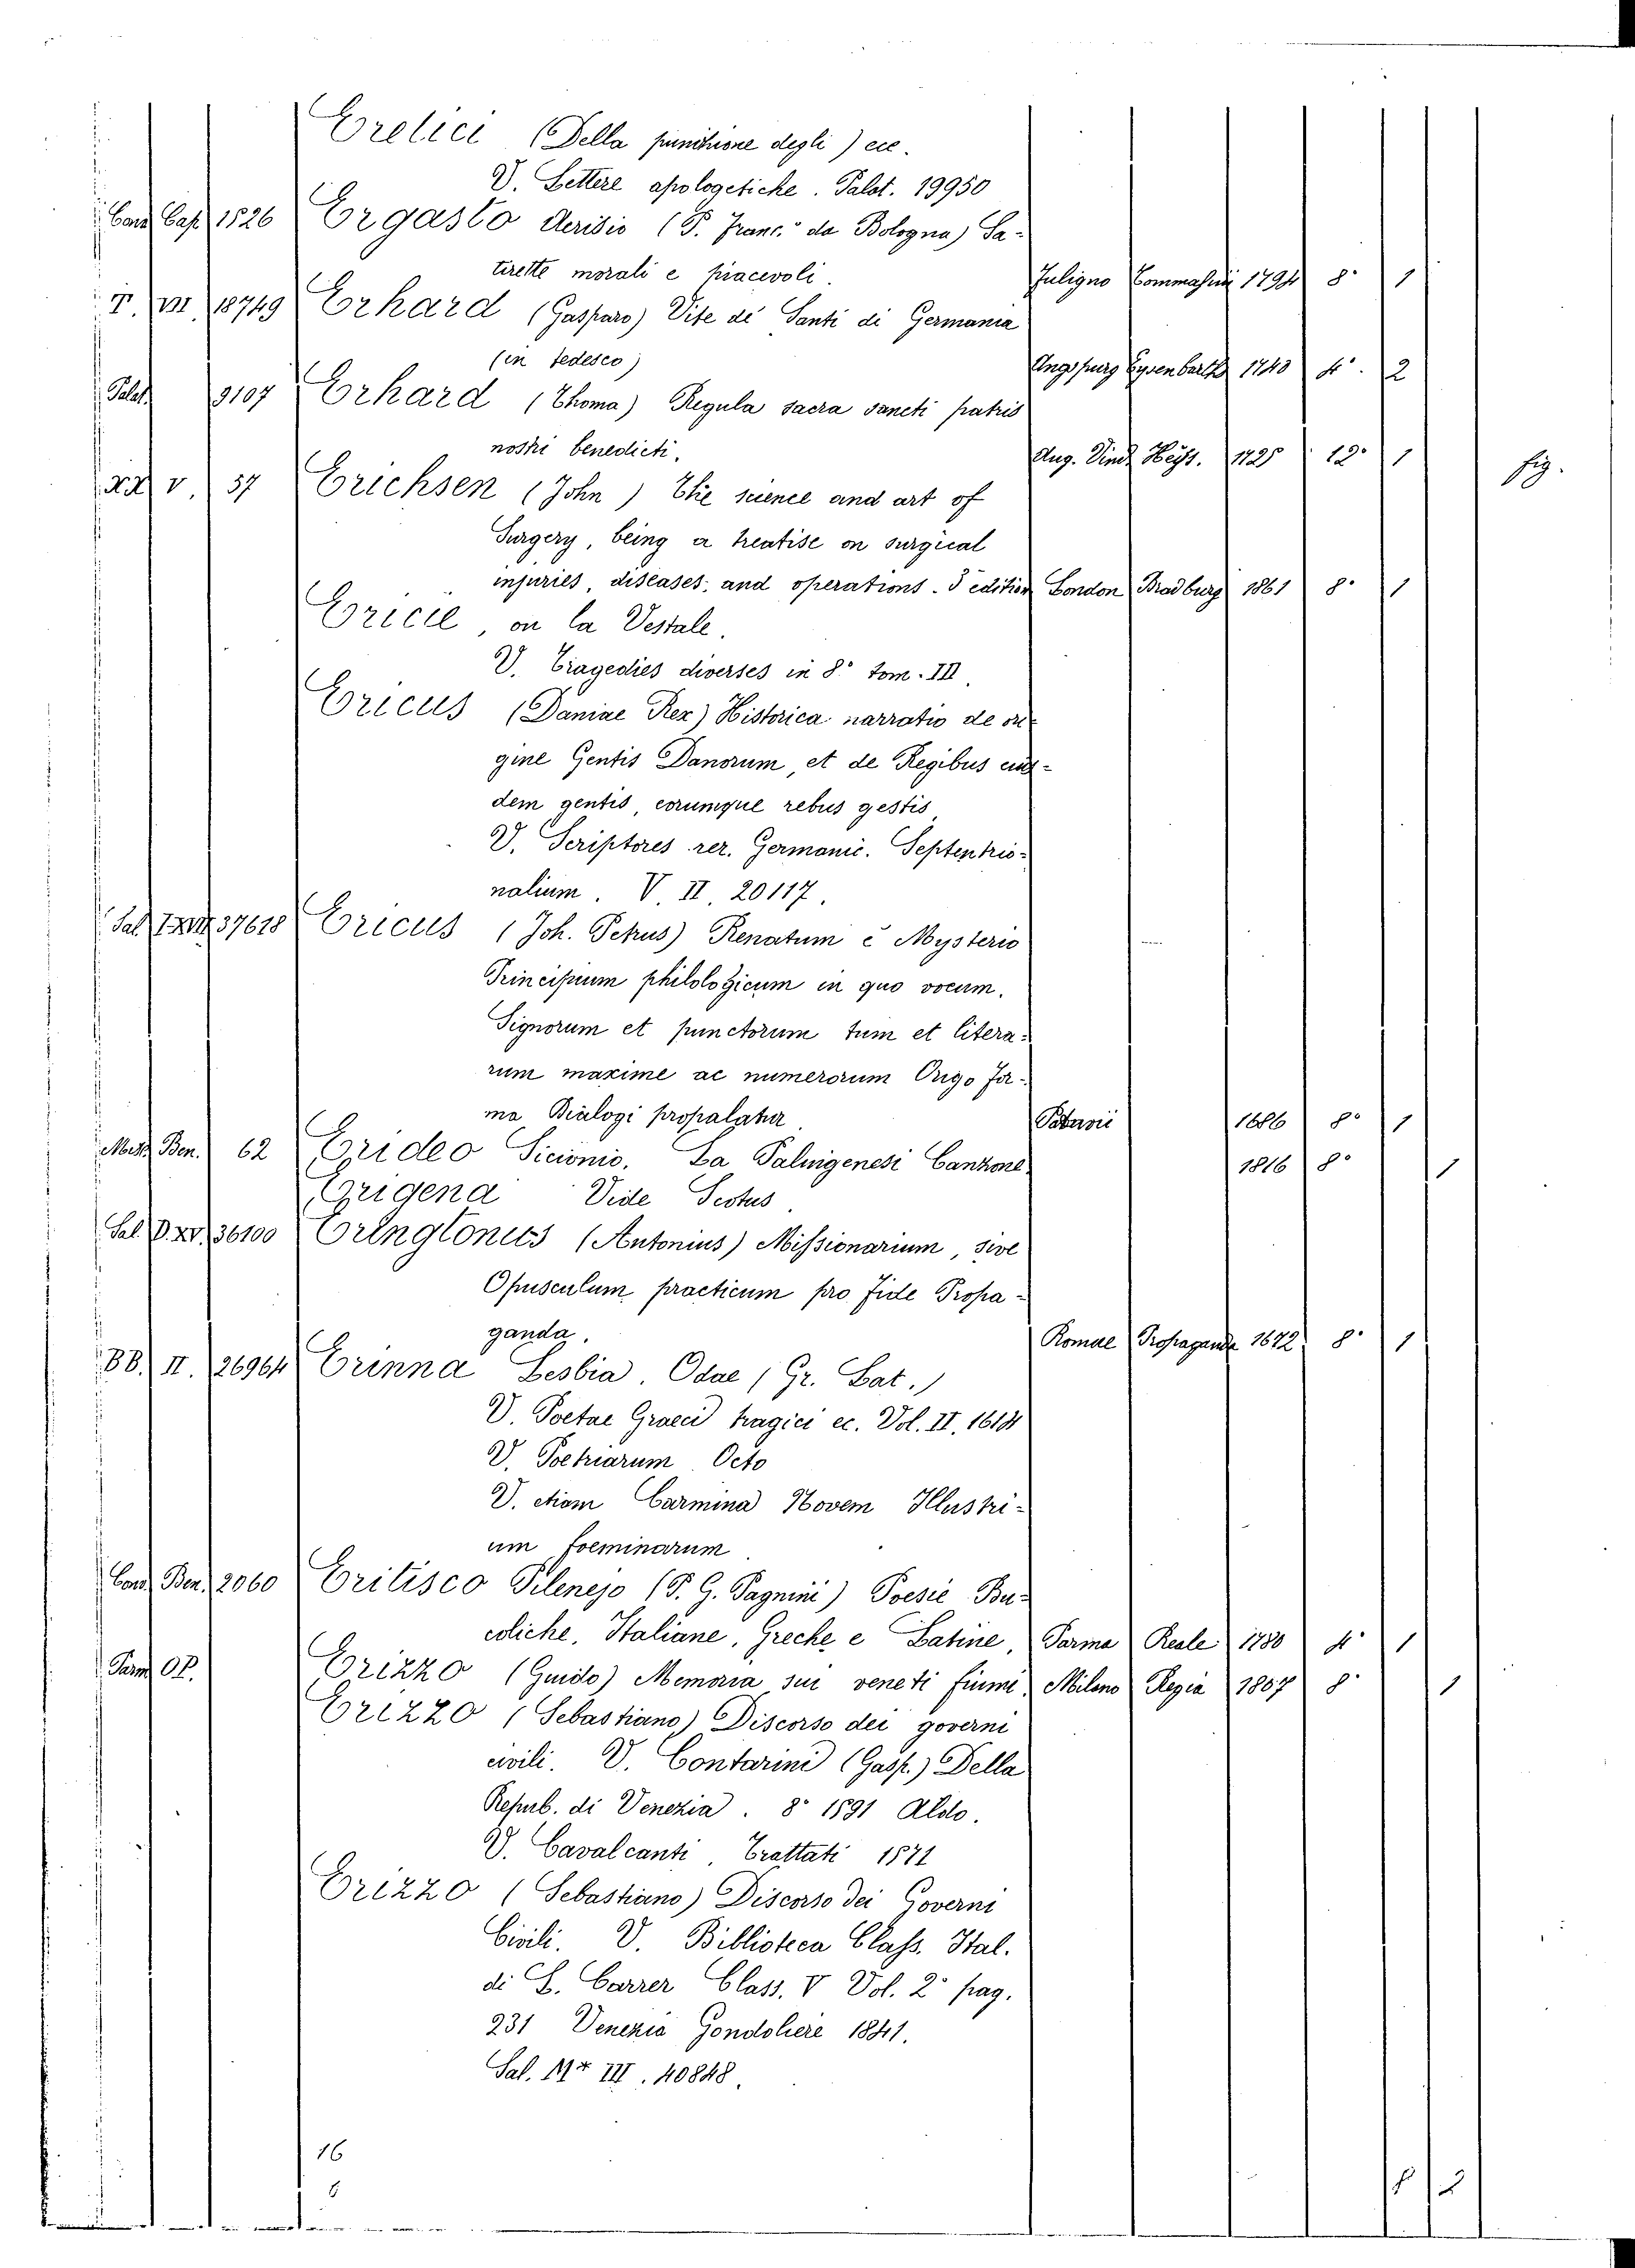 Eretici (Della punizione degli) ecc.
V. Lettere apologetiche. Palat. 19950
Conv. Cap. 1526 Ergasto Acrisio (P. Franc.º da Bologna) Sa-
tirette morali e piacevoli. Fuligno Tommasini 1794 8º 1
T. VII 18749 Erhard (Gasparo) Vite de' Santi di Germania
(in tedesco) Augspurg Eysenbarth 1740 4º. 2
Palat. 9107 Erhard (Thoma) Regula sacra sancti patris
nostri benedicti. Aug. Vind. Heiss. 1725 12º 1 fig.
XX V. 37 Erichsen (John) The science and art of
Surgery, being a treatise on surgical
injuries, diseases, and operations. 3 edition London Bradburg 1861 8º 1
Ericie, ou la Vestale.
V. Tragedies diverses in 8º tom. III.
Ericus (Daniae Rex) Historica narratio de ori-
gine Gentis Danorum, et de Regibus eius-
dem gentis, eorumque rebus gestis
V. Scriptores rer. Germanic. Septentrio-
nalium. V. II 20117.
Sal. 37618 Ericus (Joh. Petrus) Renatum è Mysterio
Principium philologicum in quo vocum,
Signorum et punctorum tum et litera-
rum maxime ac numerorum Origo for-
ma Dialogi propalatur. Patavii 1686 8º 1
Misc. Ben. 62 Erideo Sicionio. La Palingenesi Canzone. 1816 8º 1
Erigena Vide Scotus
Sal. D. XV. 36100 Eringtonus (Antonius) Missionarium, sive
Opusculum practicum pro Fide Propa-
ganda. Romae Propaganda 1672 8º 1
BB. II. 26964 Erinna Lesbia. Odae (Gr. Lat.)
V. Poetae Graeci tragici ec. Vol. II. 1614
V. Poetriarum Octo
V. etiam Carmina Novem Illustri-
um foeminarum
Conv. Ben. 2060 Eritisco Pilenejo (P. G. Pagnini) Poesie Bu-
coliche, Italiane, Greche e Latine, Parma Reale 1780 4º 1
Parm. OP. Erizzo (Guido) Memoria sui veneti fiumi. Milano Regia 1807 8º 1
Erizzo (Sebastiano) Discorso dei governi
civili. V. Contarini (Gasp.) Della
Repub. di Venezia. 8º 1591 Aldo.
V. Cavalcanti, Trattati 1571
Erizzo (Sebastiano) Discorso dei Governi
Civili. V. Biblioteca Class. Ital.
di L. Carrer Class. V Vol. 2º pag.
231 Venezia Gondoliere 1841.
Sal. III. 40848.
16
8 2